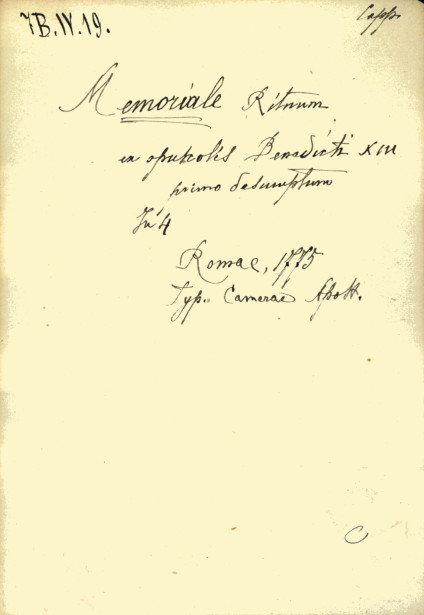 7B.IV.19.
Capp.
Memoriale Rituum
ex opusculis Benedicti XIII
primo desumptum
In 4
Romae, 1775
Typ. Camerae Apost.
C